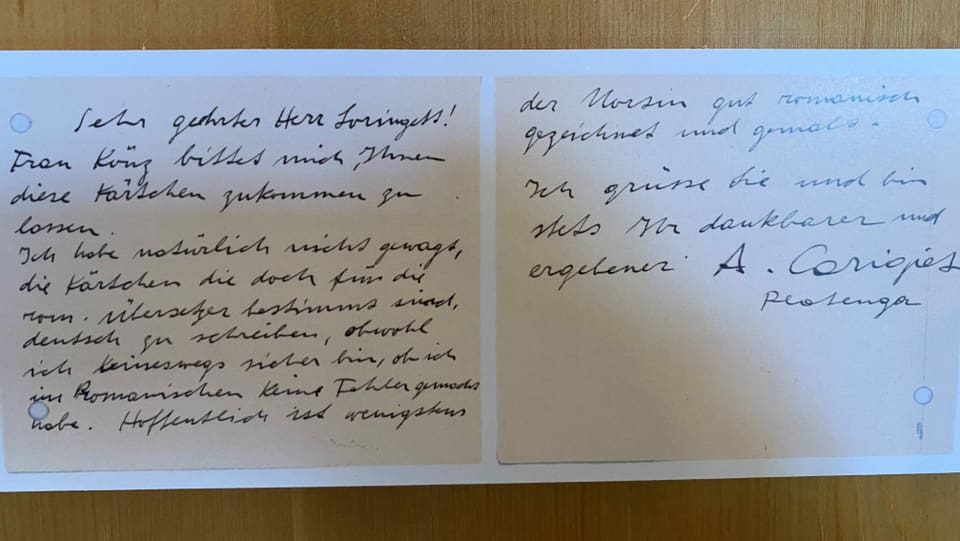 Sehr geehrter Herr Loringett!
Frau Könz bittet mich, Ihnen
diese Kärtchen zukommen zu
lassen.
Ich habe natürlich nicht gewagt,
die Kärtchen die doch für die
rom. Übersetzer bestimmt sind,
deutsch zu schreiben, obwohl
ich keineswegs sicher bin, ob ich
im Romanischen keine Fehler gemacht
habe. Hoffentlich ist wenigstens
der Uorsin gut romanisch
gezeichnet und gemalt.
Ich grüsse Sie und bin
stets Ihr dankbarer und
ergebener A. Carigiet
Platenga